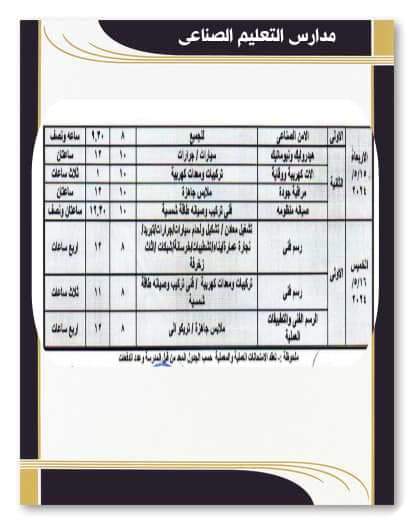 مدارس التعليم الصناعى
الاربعاء ٥/١٥/ ٢٠٢٤ الاولى الامن الصناعى للجميع ٨ ٩,٣٠ ساعه ونصف
الثانية هيدروليك ونيوماتيك سيارات / جرارات ١٠ ١٢ ساعتان
الات كهربية ووقاية تركيبات ومعدات كهربية ١٠ ١ ثلاث ساعات
مراقبة جودة ملابس جاهزة ١٠ ١٢ ساعتان
صيانه منظومه فنى تركيب وصيانه طاقة شمسية ١٠ ١٢,٣٠ ساعتان ونصف
الخميس ٥/١٦/ ٢٠٢٤ الاولى رسم فنى تشغيل معادن / تشكيل ولحام / سيارات/جرارات/تبريد/
نجارة عمارة/بناء/تشطيبات/خرسانة/شبكات /اثاث
زخرفة ٨ ١٢ اربع ساعات
رسم فنى تركيبات ومعدات كهربية / فنى تركيب وصيانه طاقة
شمسية ٨ ١١ ثلاث ساعات
الرسم الفنى والتطبيقات
العملية ملابس جاهزة / تريكو الى ٨ ١٢ اربع ساعات
ملحوظة :- تعقد الامتحانات العملية والمعملية حسب الجدول المعد من قبل المدرسة وعدد الدفعات